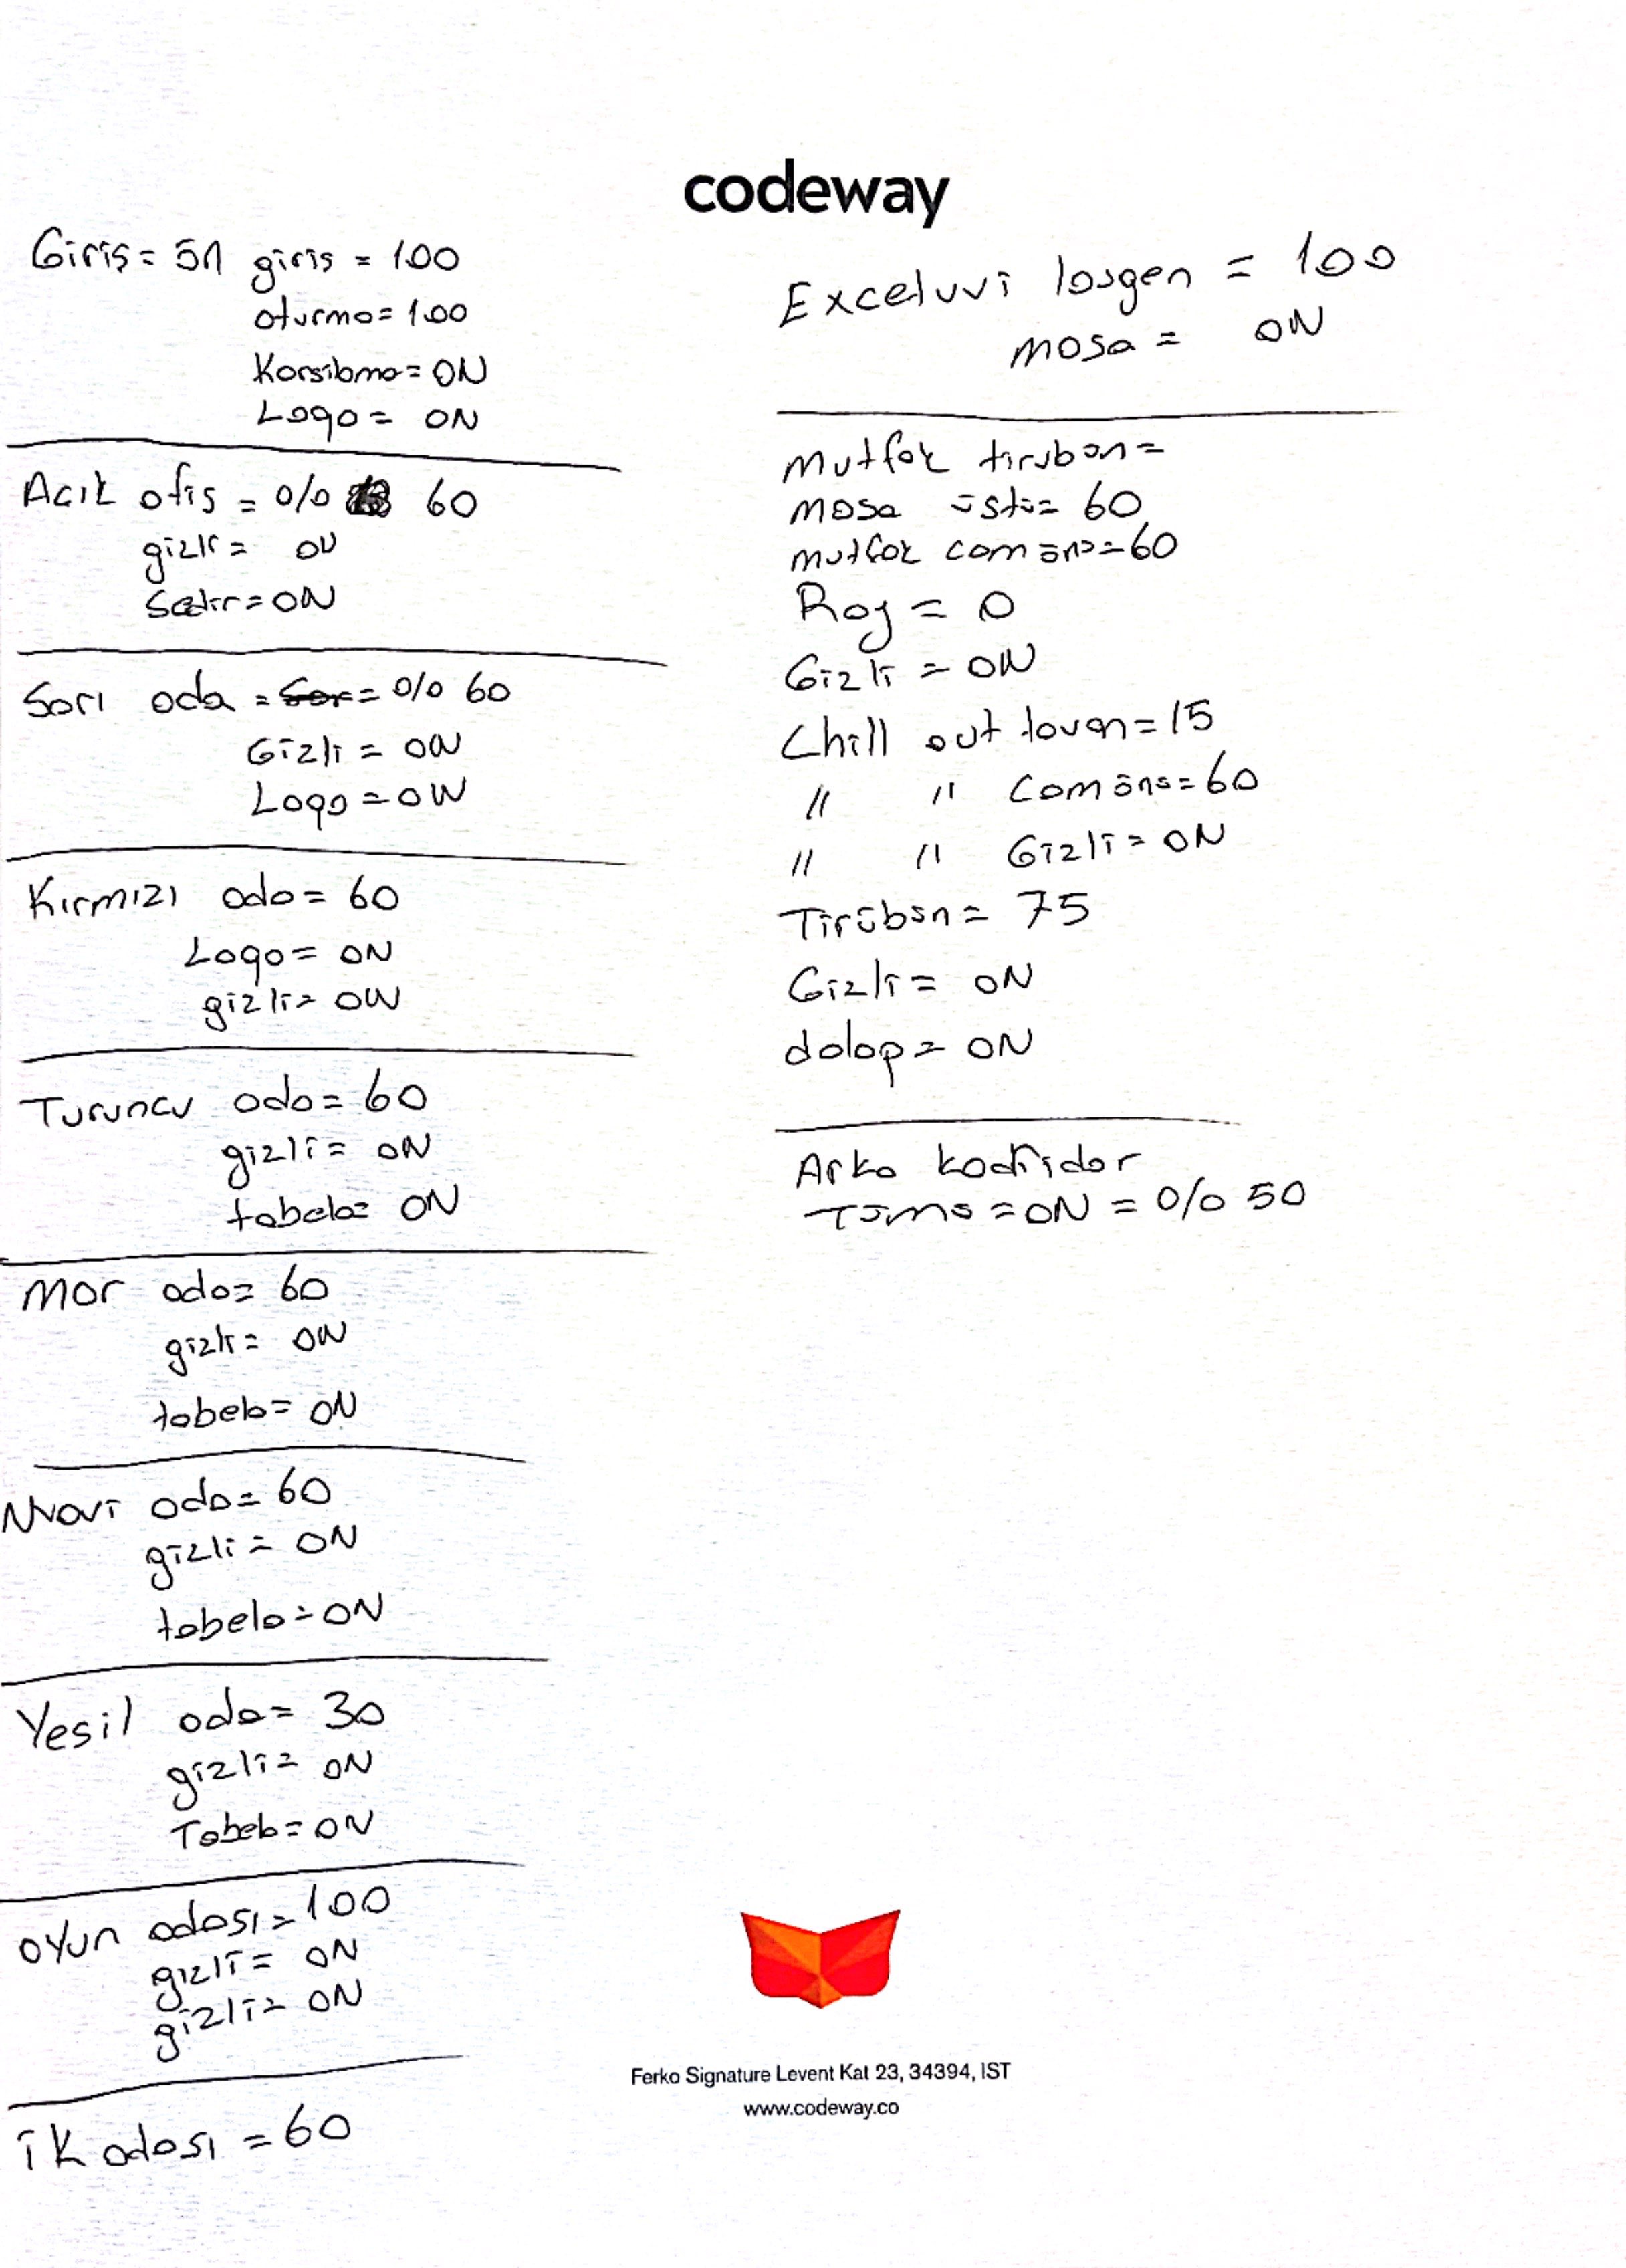 codeway
Giriş = ön giris = 100
oturma = 100
Karsilama = ON
Logo = ON
Acik ofis = 0/0 60
gizli = ON
Satır = ON
Sarı oda = = 0/0 60
Gizli = ON
Logo = ON
Kırmızı oda = 60
Logo = ON
gizli = ON
Turuncu oda = 60
gizli = ON
tabela = ON
Mor oda = 60
gizli = ON
tabela = ON
Mavi oda = 60
gizli = ON
tabela = ON
Yesil oda = 30
gizli = ON
Tabela = ON
oyun odası = 100
gizli = ON
gizli = ON
ik odası = 60
Exceluvi losgen = 100
masa = ON
Mutfak tirubon =
masa üstü = 60
mutfak cam önü = 60
Ray = 0
Gizli = ON
Chill out tavan = 15
" " Cam önü = 60
" " Gizli = ON
Tirübün = 75
Gizli = ON
dolap = ON
Arka koridor
= ON = 0/0 50
Ferko Signature Levent Kat 23, 34394, IST
www.codeway.co